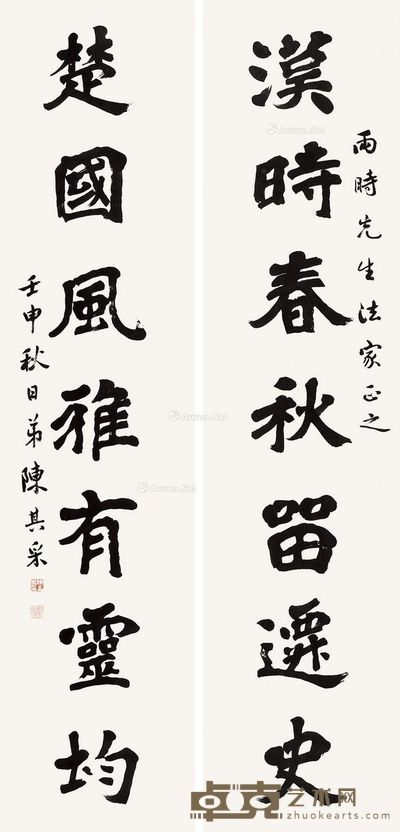 雨時先生法家正之
漢時春秋留遷史
楚國風雅有靈均
壬申秋日弟陳其采
Artron.Net
Artron.Net
Artron.Net
Artron.Net
卓克艺术网
zhuokearts.com